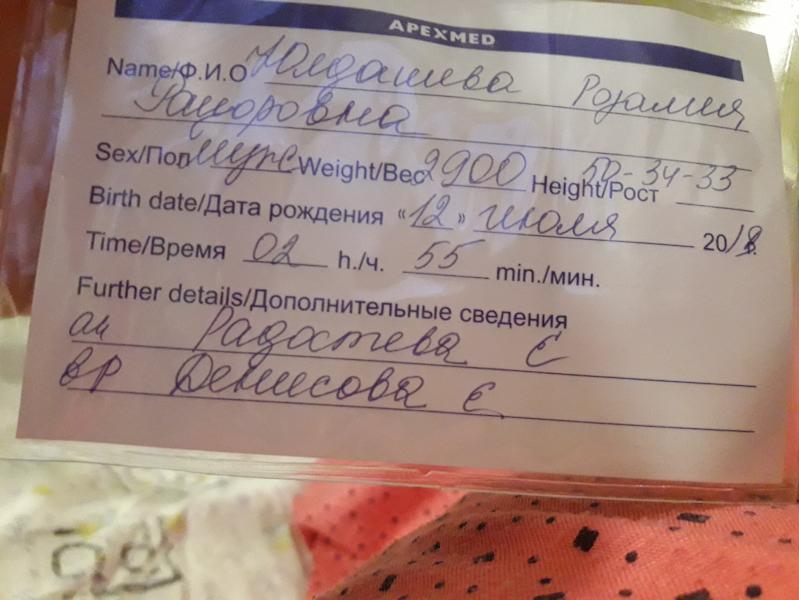 APEXMED
Name/Ф.И.О Юлдашева Розалия
Sex/Пол муж Weight/Вес 2900 Height/Рост 50-34-33
Birth date/Дата рождения «12» июля 2018.
Time/Время 02 h./ч. 55 min./мин.
Further details/Дополнительные сведения
ак Радостева Е
вр Денисова Е